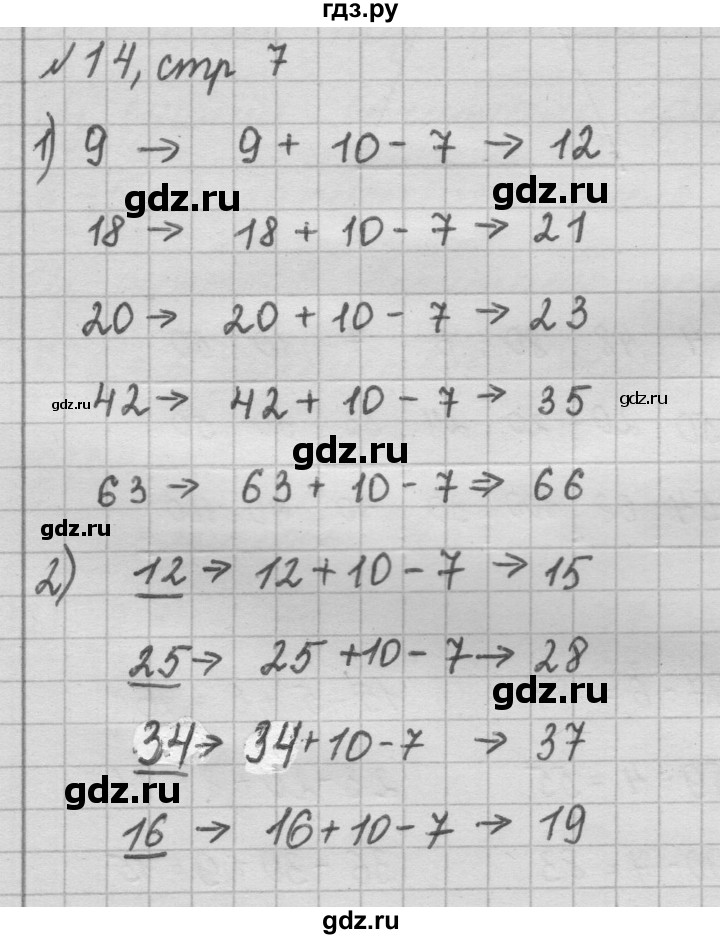 гдз.ру
№ 14, стр 7
1) 9 → 9 + 10 - 7 → 12
gdz.ru gdz.ru
18 → 18 + 10 - 7 → 21
20 → 20 + 10 - 7 → 23
gdz.ru 42 → 42 + 10 - 7 → 35 gdz.ru
gdz.ru
63 → 63 + 10 - 7 ⇒ 66
gdz.ru
2) 12 → 12 + 10 - 7 → 15
25 → 25 + 10 - 7 → 28
gdz.ru
34 → 34 + 10 - 7 → 37
gdz.ru
16 → 16 + 10 - 7 → 19
gdz.ru